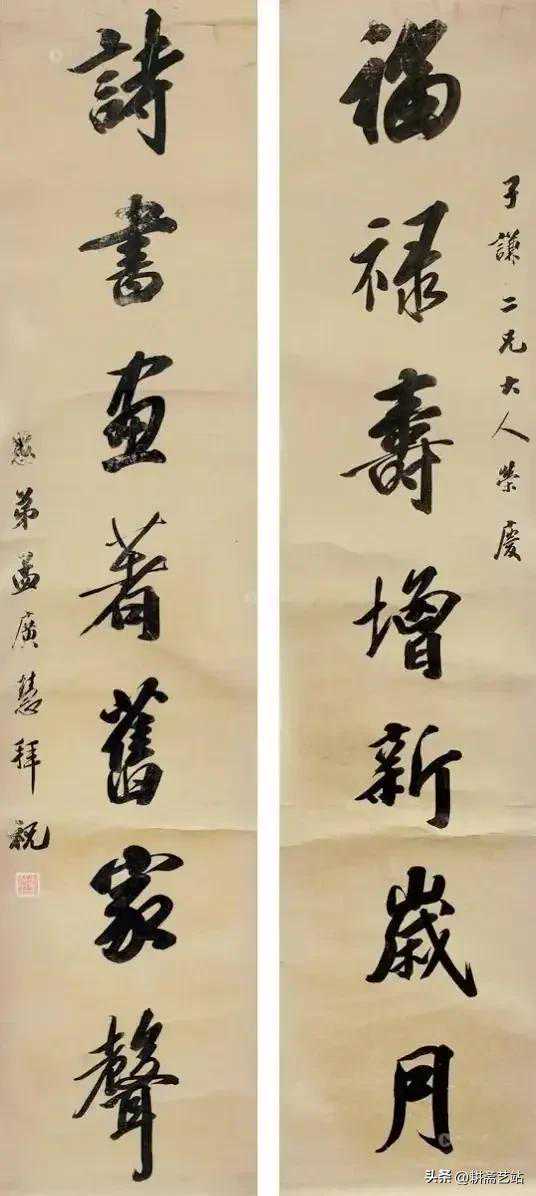 子謙二兄大人榮慶
福祿壽增新歲月
詩書畫著舊家聲
愚弟孟廣慧拜祝
头条 @耕斋艺站